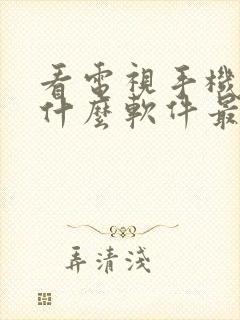 看電視手機
什麼軟件最
弄清淺